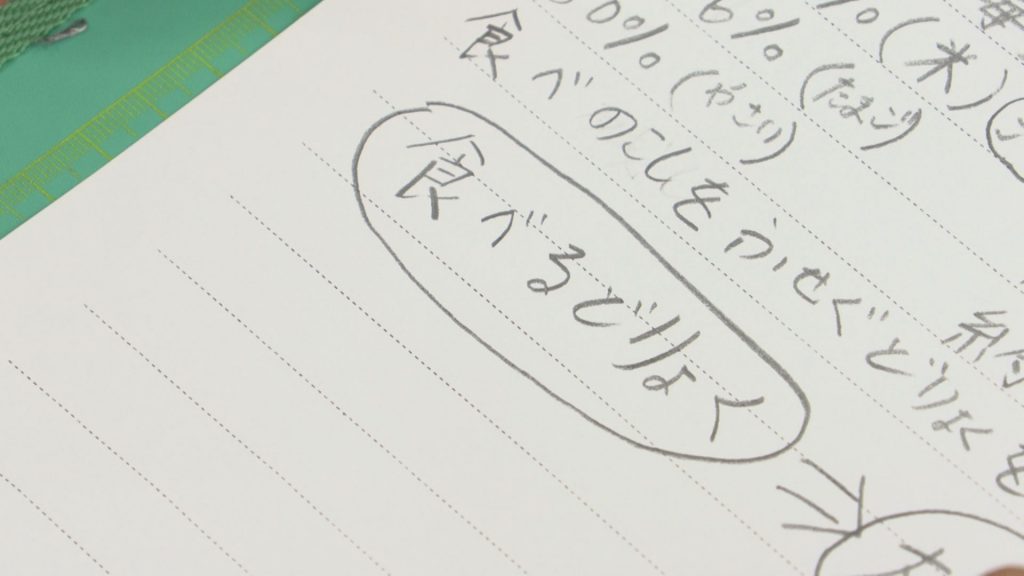 %(米)
6%(たまご)
0%(やさい)
食べのこしをふせぐどりょくを
食べるどりょく